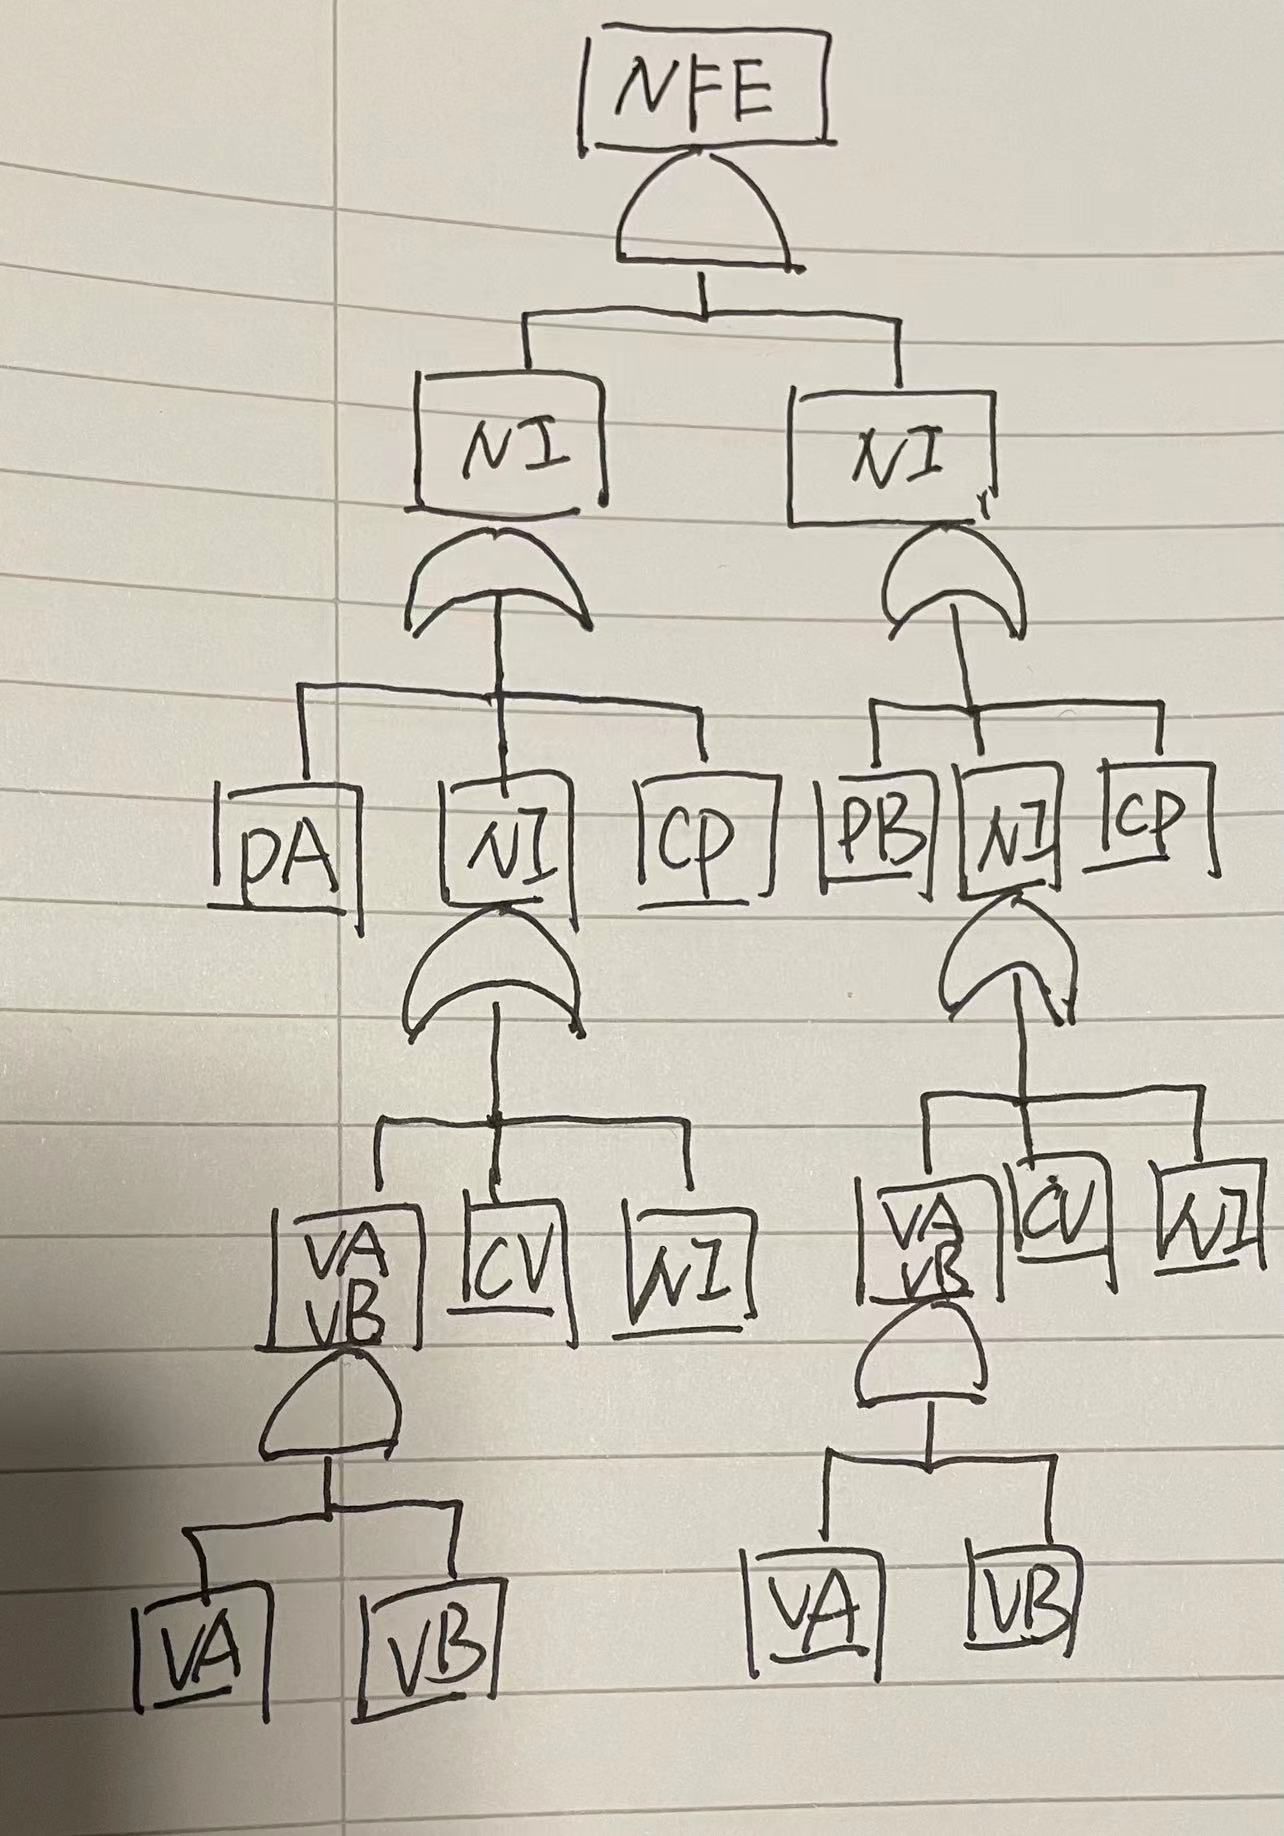 NFE
NI
NI
PA
NI
CP
PB
NI
CP
VA
VB
CV
NI
VA
VB
CV
NI
VA
VB
VA
VB